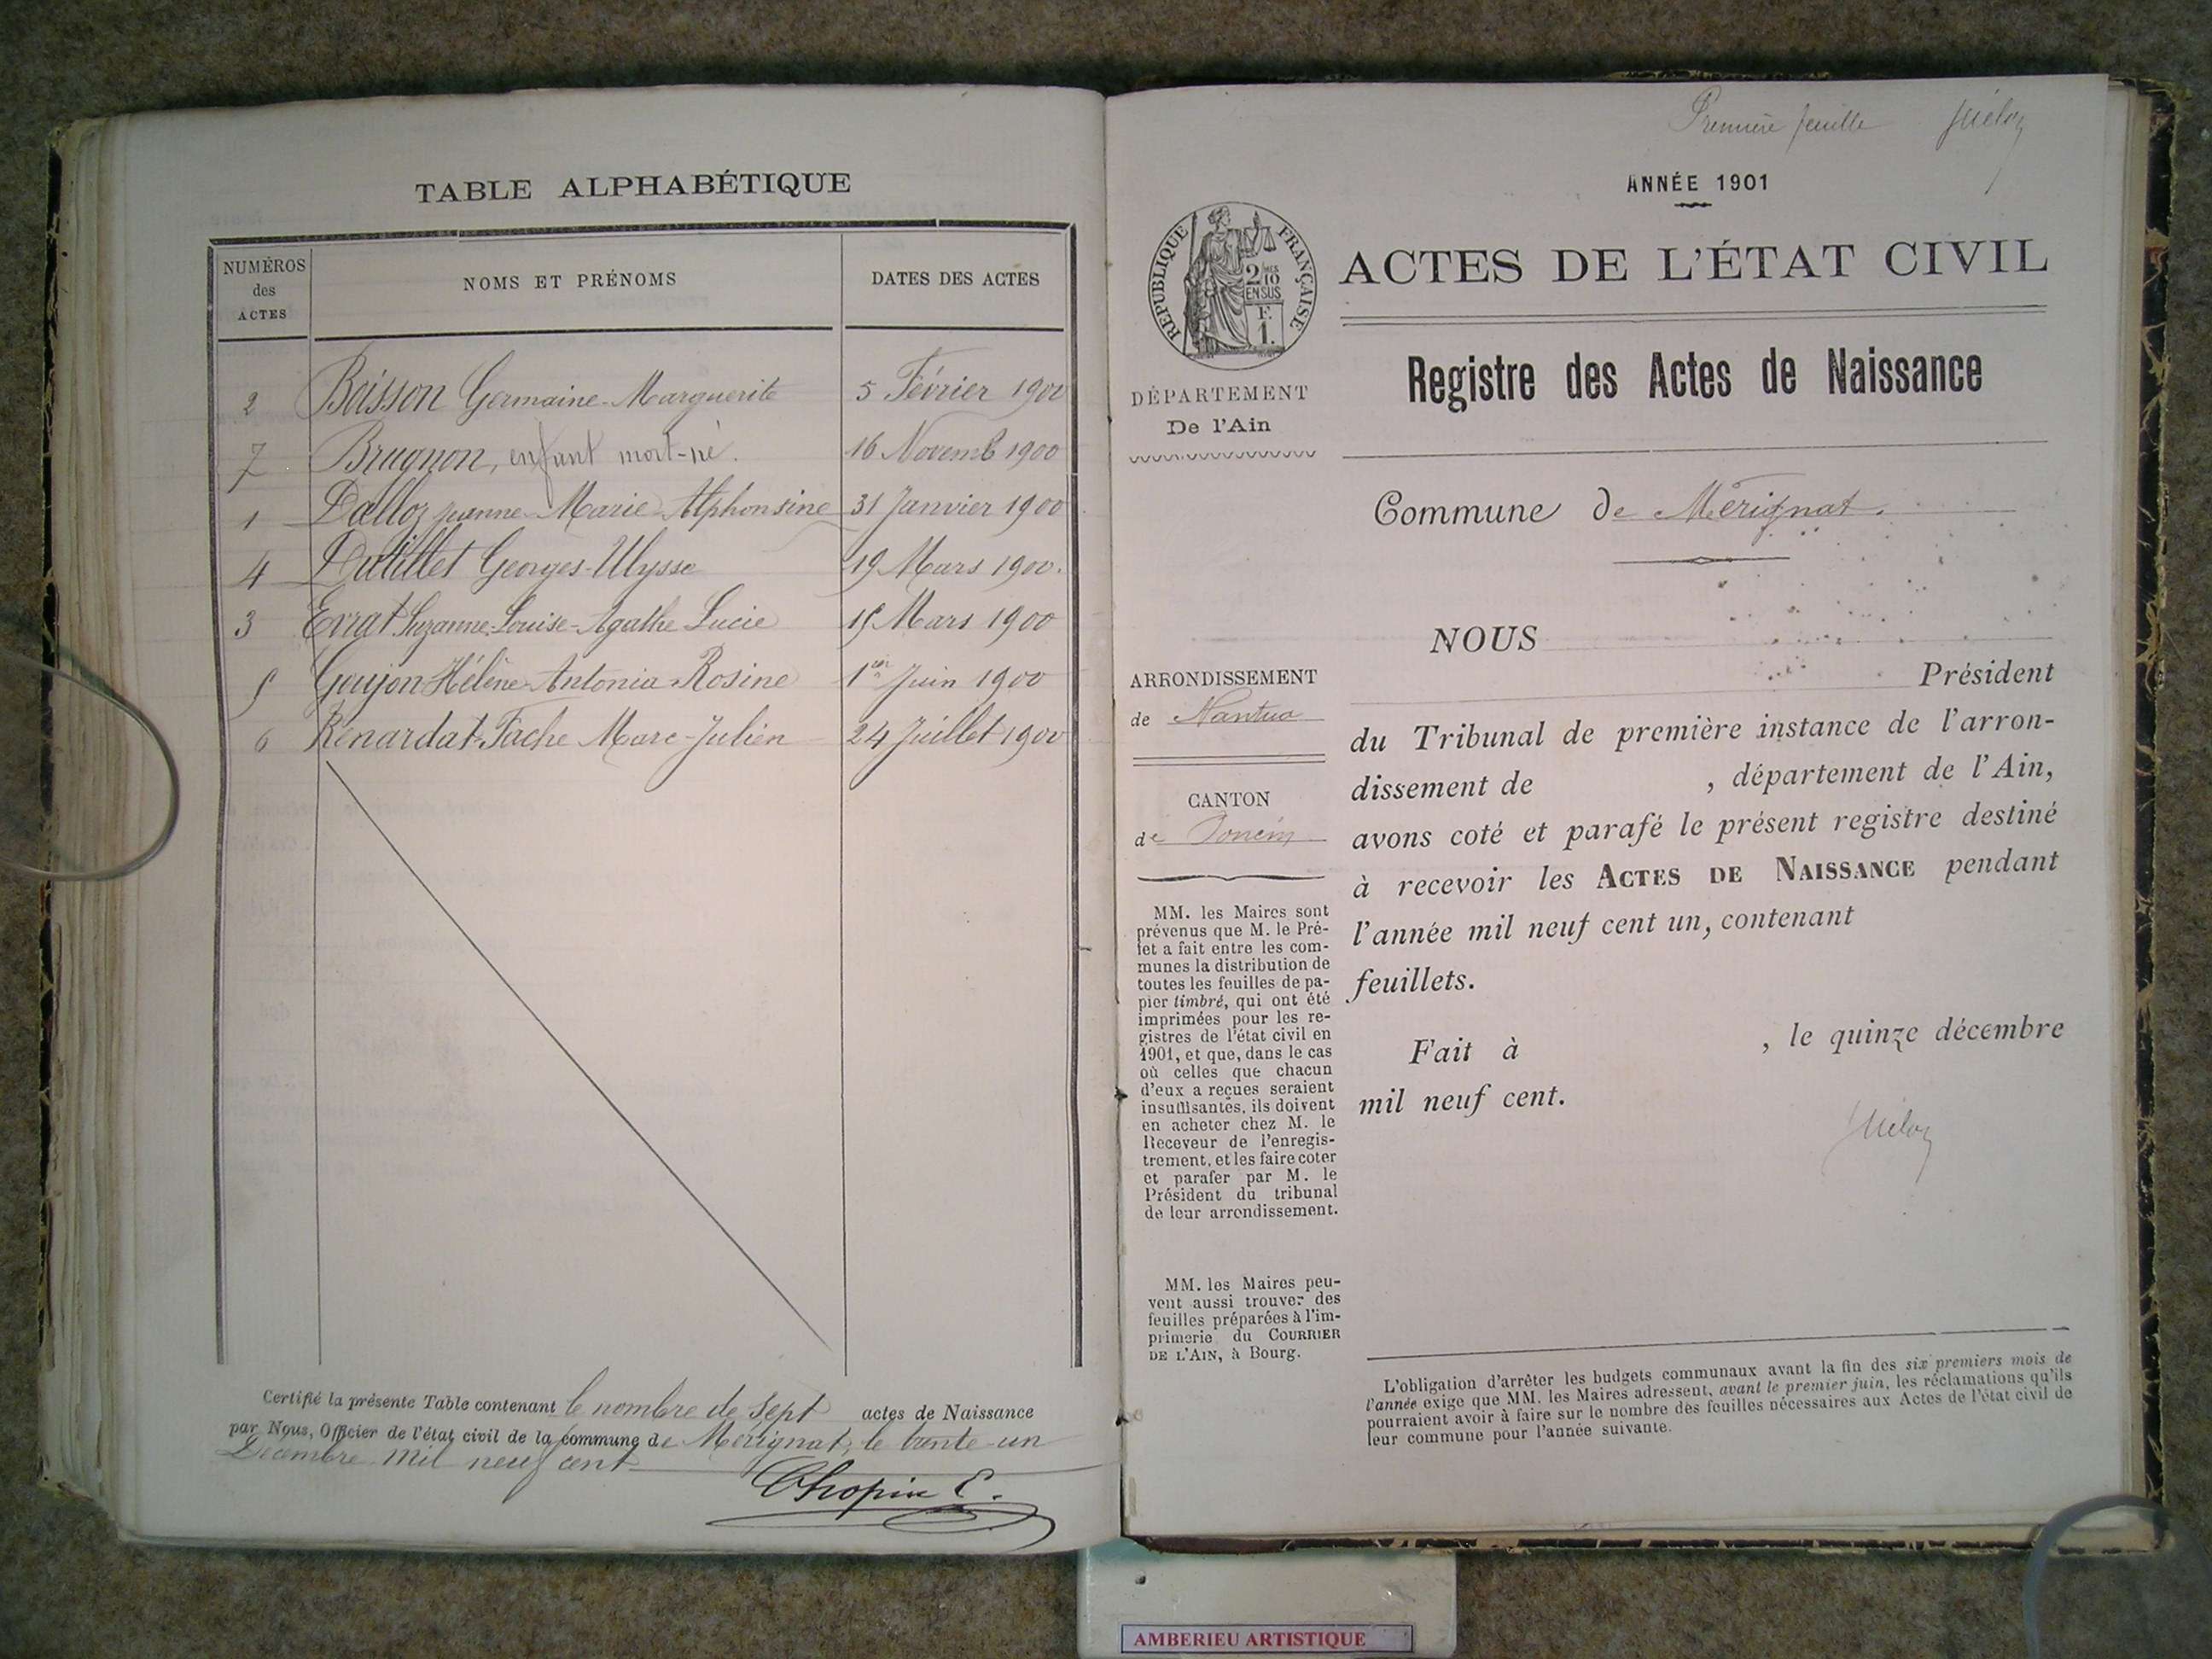 TABLE ALPHABÉTIQUE
NUMÉROS des ACTES
NOMS ET PRÉNOMS
DATES DES ACTES
2 Boisson Germaine-Marguerite 5 Février 1900
7 Brugnon, enfant mort-né. 16 Novemb 1900
1 Dalloz Jeanne-Marie-Alphonsine 31 Janvier 1900
4 Dutillet Georges-Ulysse 19 Mars 1900.
3 Evrat Suzanne-Louise-Agathe Lucie 15 Mars 1900
5 Goujon Hélène-Antonia-Rosine 1er Juin 1900
6 Renardat-Fache Marc-Julien 24 Juillet 1900
Certifié la présente Table contenant le nombre de sept actes de Naissance
par Nous, Officier de l'état civil de la commune de Mérignat, le trente-un
Décembre mil neuf cent
Chopin E.
Première feuille
ANNÉE 1901
RÉPUBLIQUE FRANÇAISE
2/10 EN SUS
F. 1.
ACTES DE L'ÉTAT CIVIL
Registre des Actes de Naissance
DÉPARTEMENT
De l'Ain
Commune de Mérignat.
ARRONDISSEMENT
de Nantua
CANTON
de Poncin
MM. les Maires sont
prévenus que M. le Pré-
fet a fait entre les com-
munes la distribution de
toutes les feuilles de pa-
pier timbré, qui ont été
imprimées pour les re-
gistres de l'état civil en
1901, et que, dans le cas
où celles que chacun
d'eux a reçues seraient
insuffisantes, ils doivent
en acheter chez M. le
Receveur de l'enregis-
trement, et les faire coter
et parafer par M. le
Président du tribunal
de leur arrondissement.
MM. les Maires peu-
vent aussi trouver des
feuilles préparées à l'im-
primerie du COURRIER
DE L'AIN, à Bourg.
NOUS
Président
du Tribunal de première instance de l'arron-
dissement de , département de l'Ain,
avons coté et parafé le présent registre destiné
à recevoir les ACTES DE NAISSANCE pendant
l'année mil neuf cent un, contenant
feuillets.
Fait à , le quinze décembre
mil neuf cent.
L'obligation d'arrêter les budgets communaux avant la fin des six premiers mois de
l'année exige que MM. les Maires adressent, avant le premier juin, les réclamations qu'ils
pourraient avoir à faire sur le nombre des feuilles nécessaires aux Actes de l'état civil de
leur commune pour l'année suivante.
AMBERIEU ARTISTIQUE